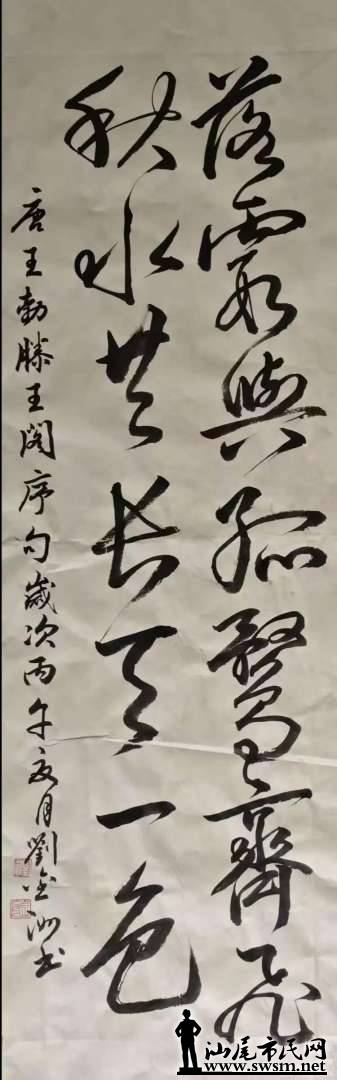 落霞與孤鶩齊飛
秋水共長天一色
唐王勃滕王閣序句歲次丙午夏月劉金洲书
汕尾市民网
www.swsm.net